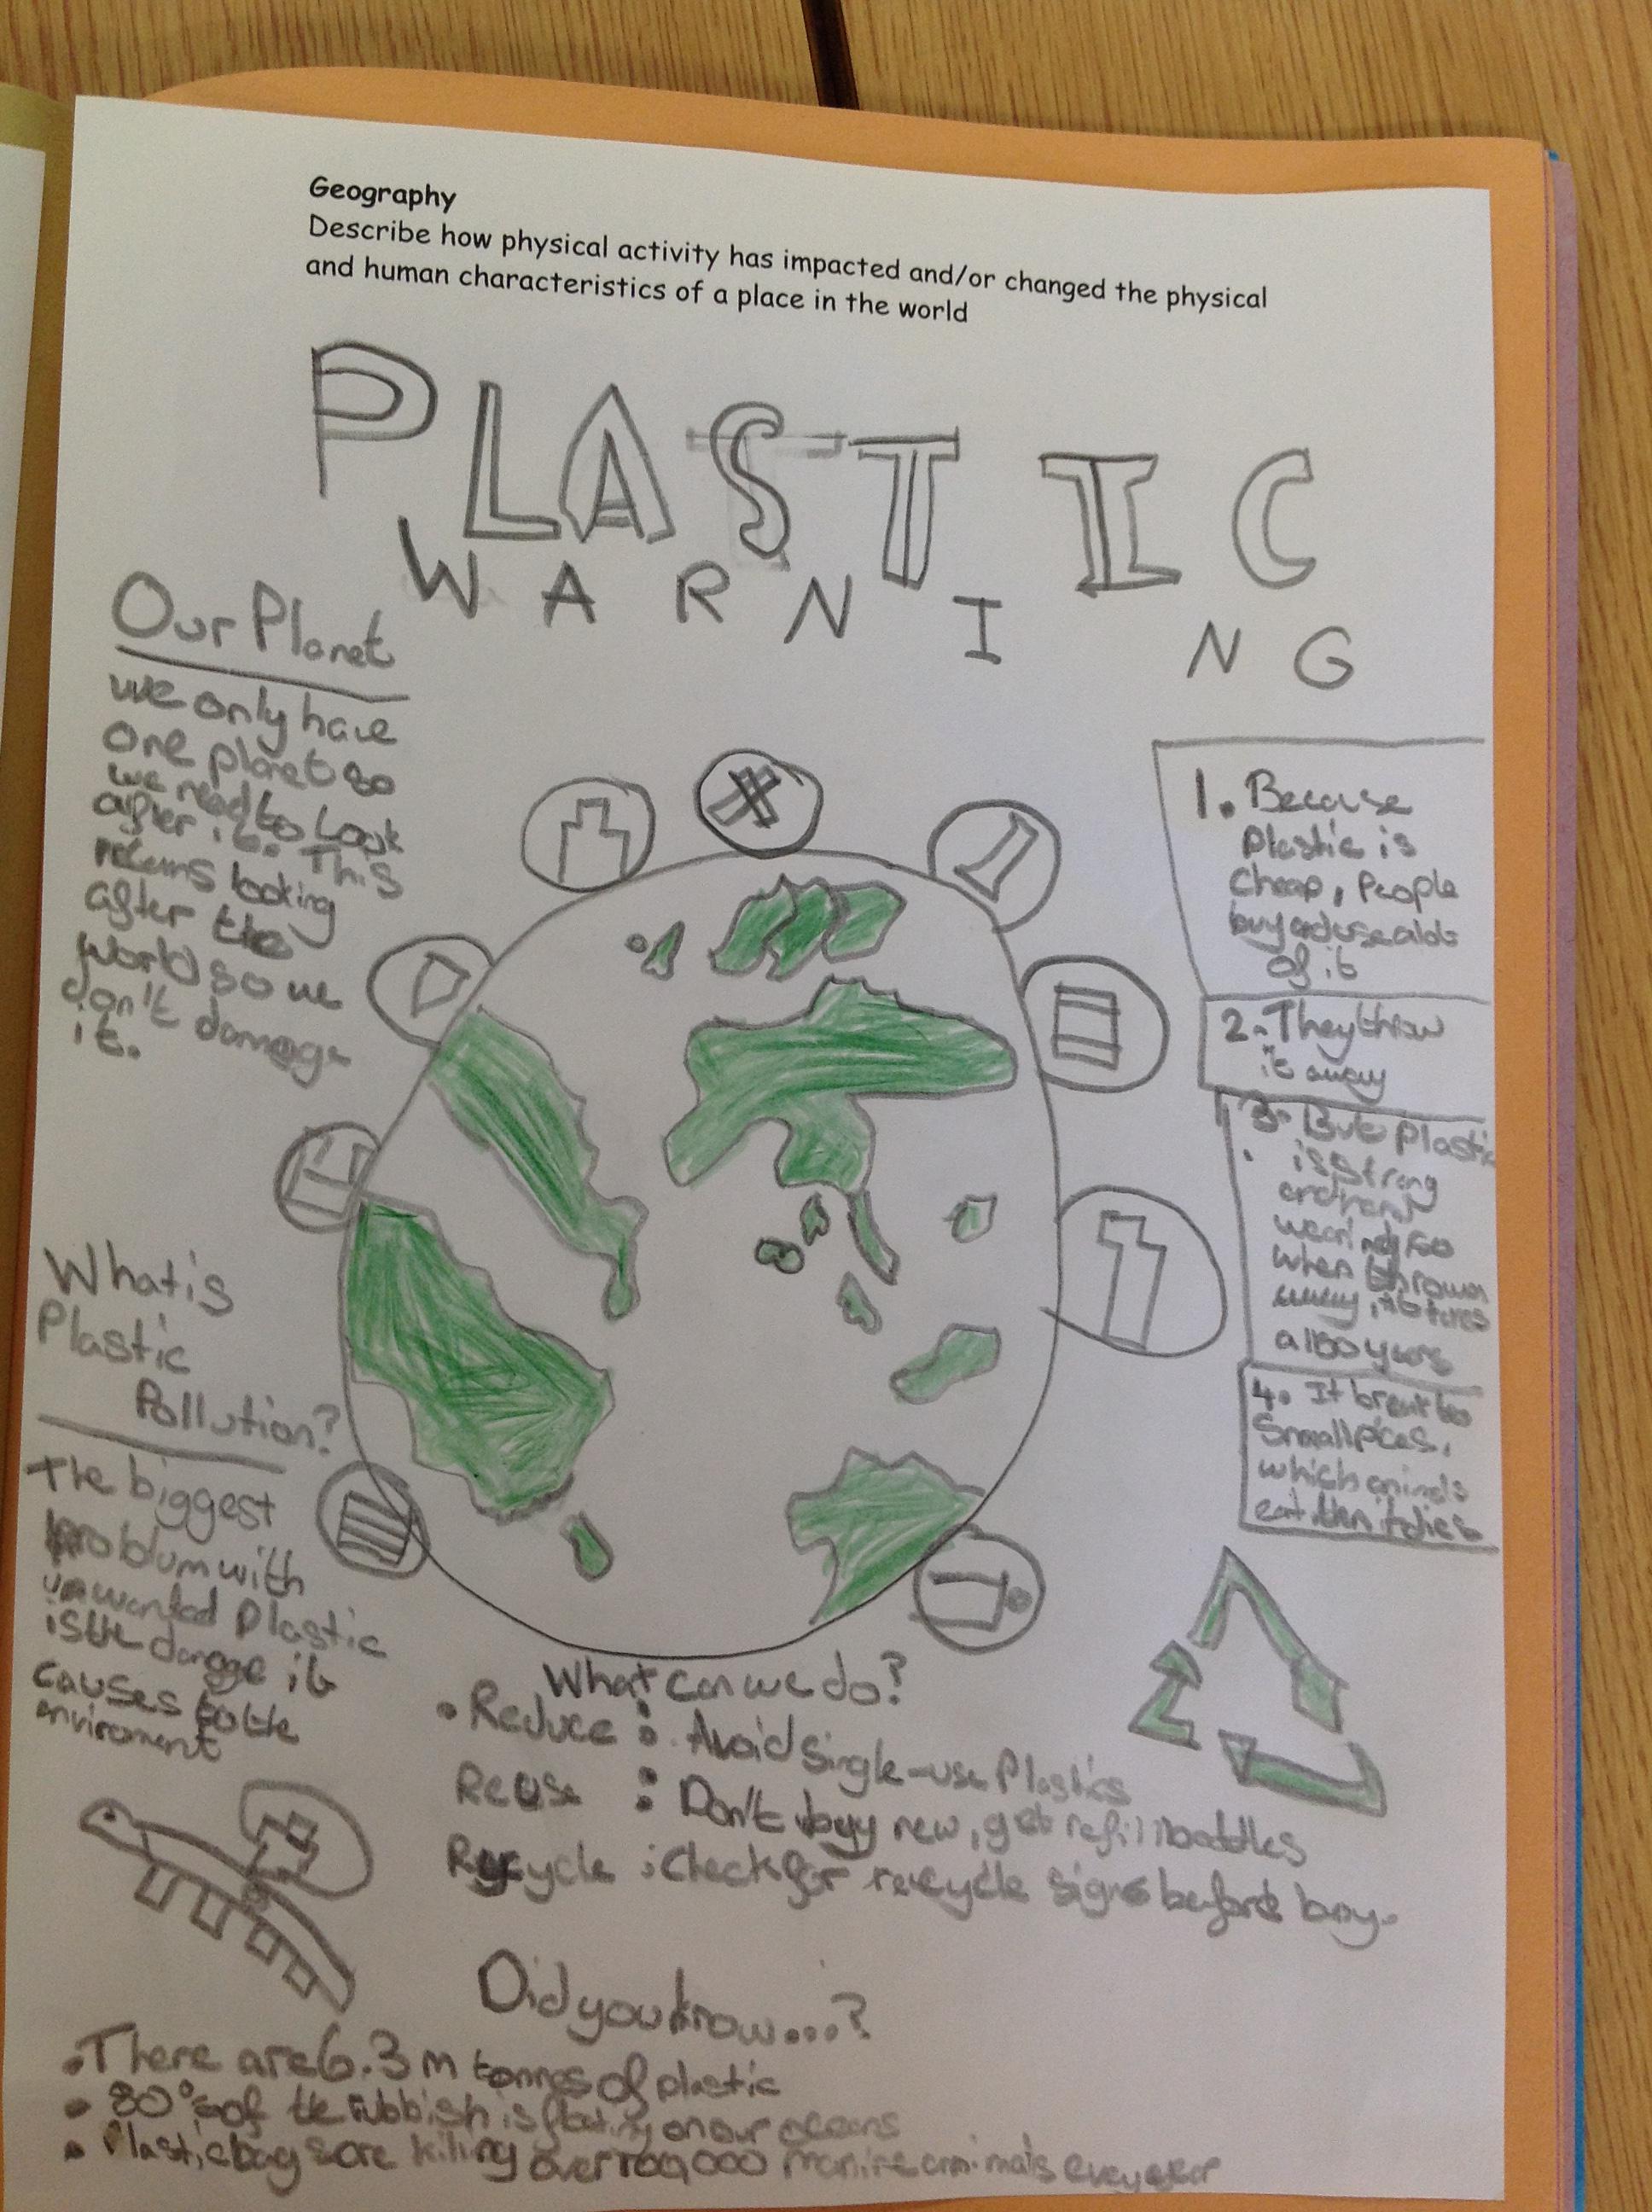 Geography
Describe how physical activity has impacted and/or changed the physical
and human characteristics of a place in the world
PLASTIC
WARNING
Our Planet
we only have
one planet so
we need to look
after it. This
means looking
after the
world so we
don't damage
it.
What is
Plastic
Pollution?
The biggest
problum with
unwanted plastic
is the damage it
causes to the
enviroment
1. Because
plastic is
cheap, people
buy and use alot
of it
2. They throw
it away
3. But plastic
is strong
and hard
wearing so
when thrown
away, it
years
4. It break to
small pices,
which animals
eat then it dies
What can we do?
• Reduce : Avoid single-use plastics
Reuse : Don't buy new, get refill bottles
Recycle : Check for recycle signs before buy.
Did you know...?
• There are 6.3 m tonnes of plastic
• 80% of the rubbish is floating on our oceans
• Plastic bags are killing over 100,000 marine animals every year